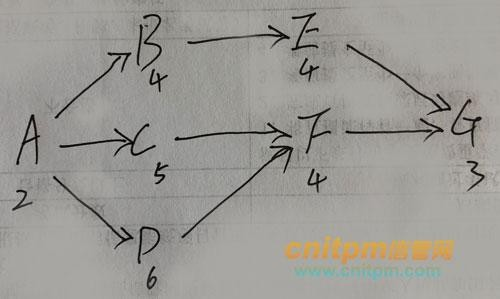 B
4
E
4
A
2
C
5
F
4
G
3
D
6
cnitpm信管网
www.cnitpm.com